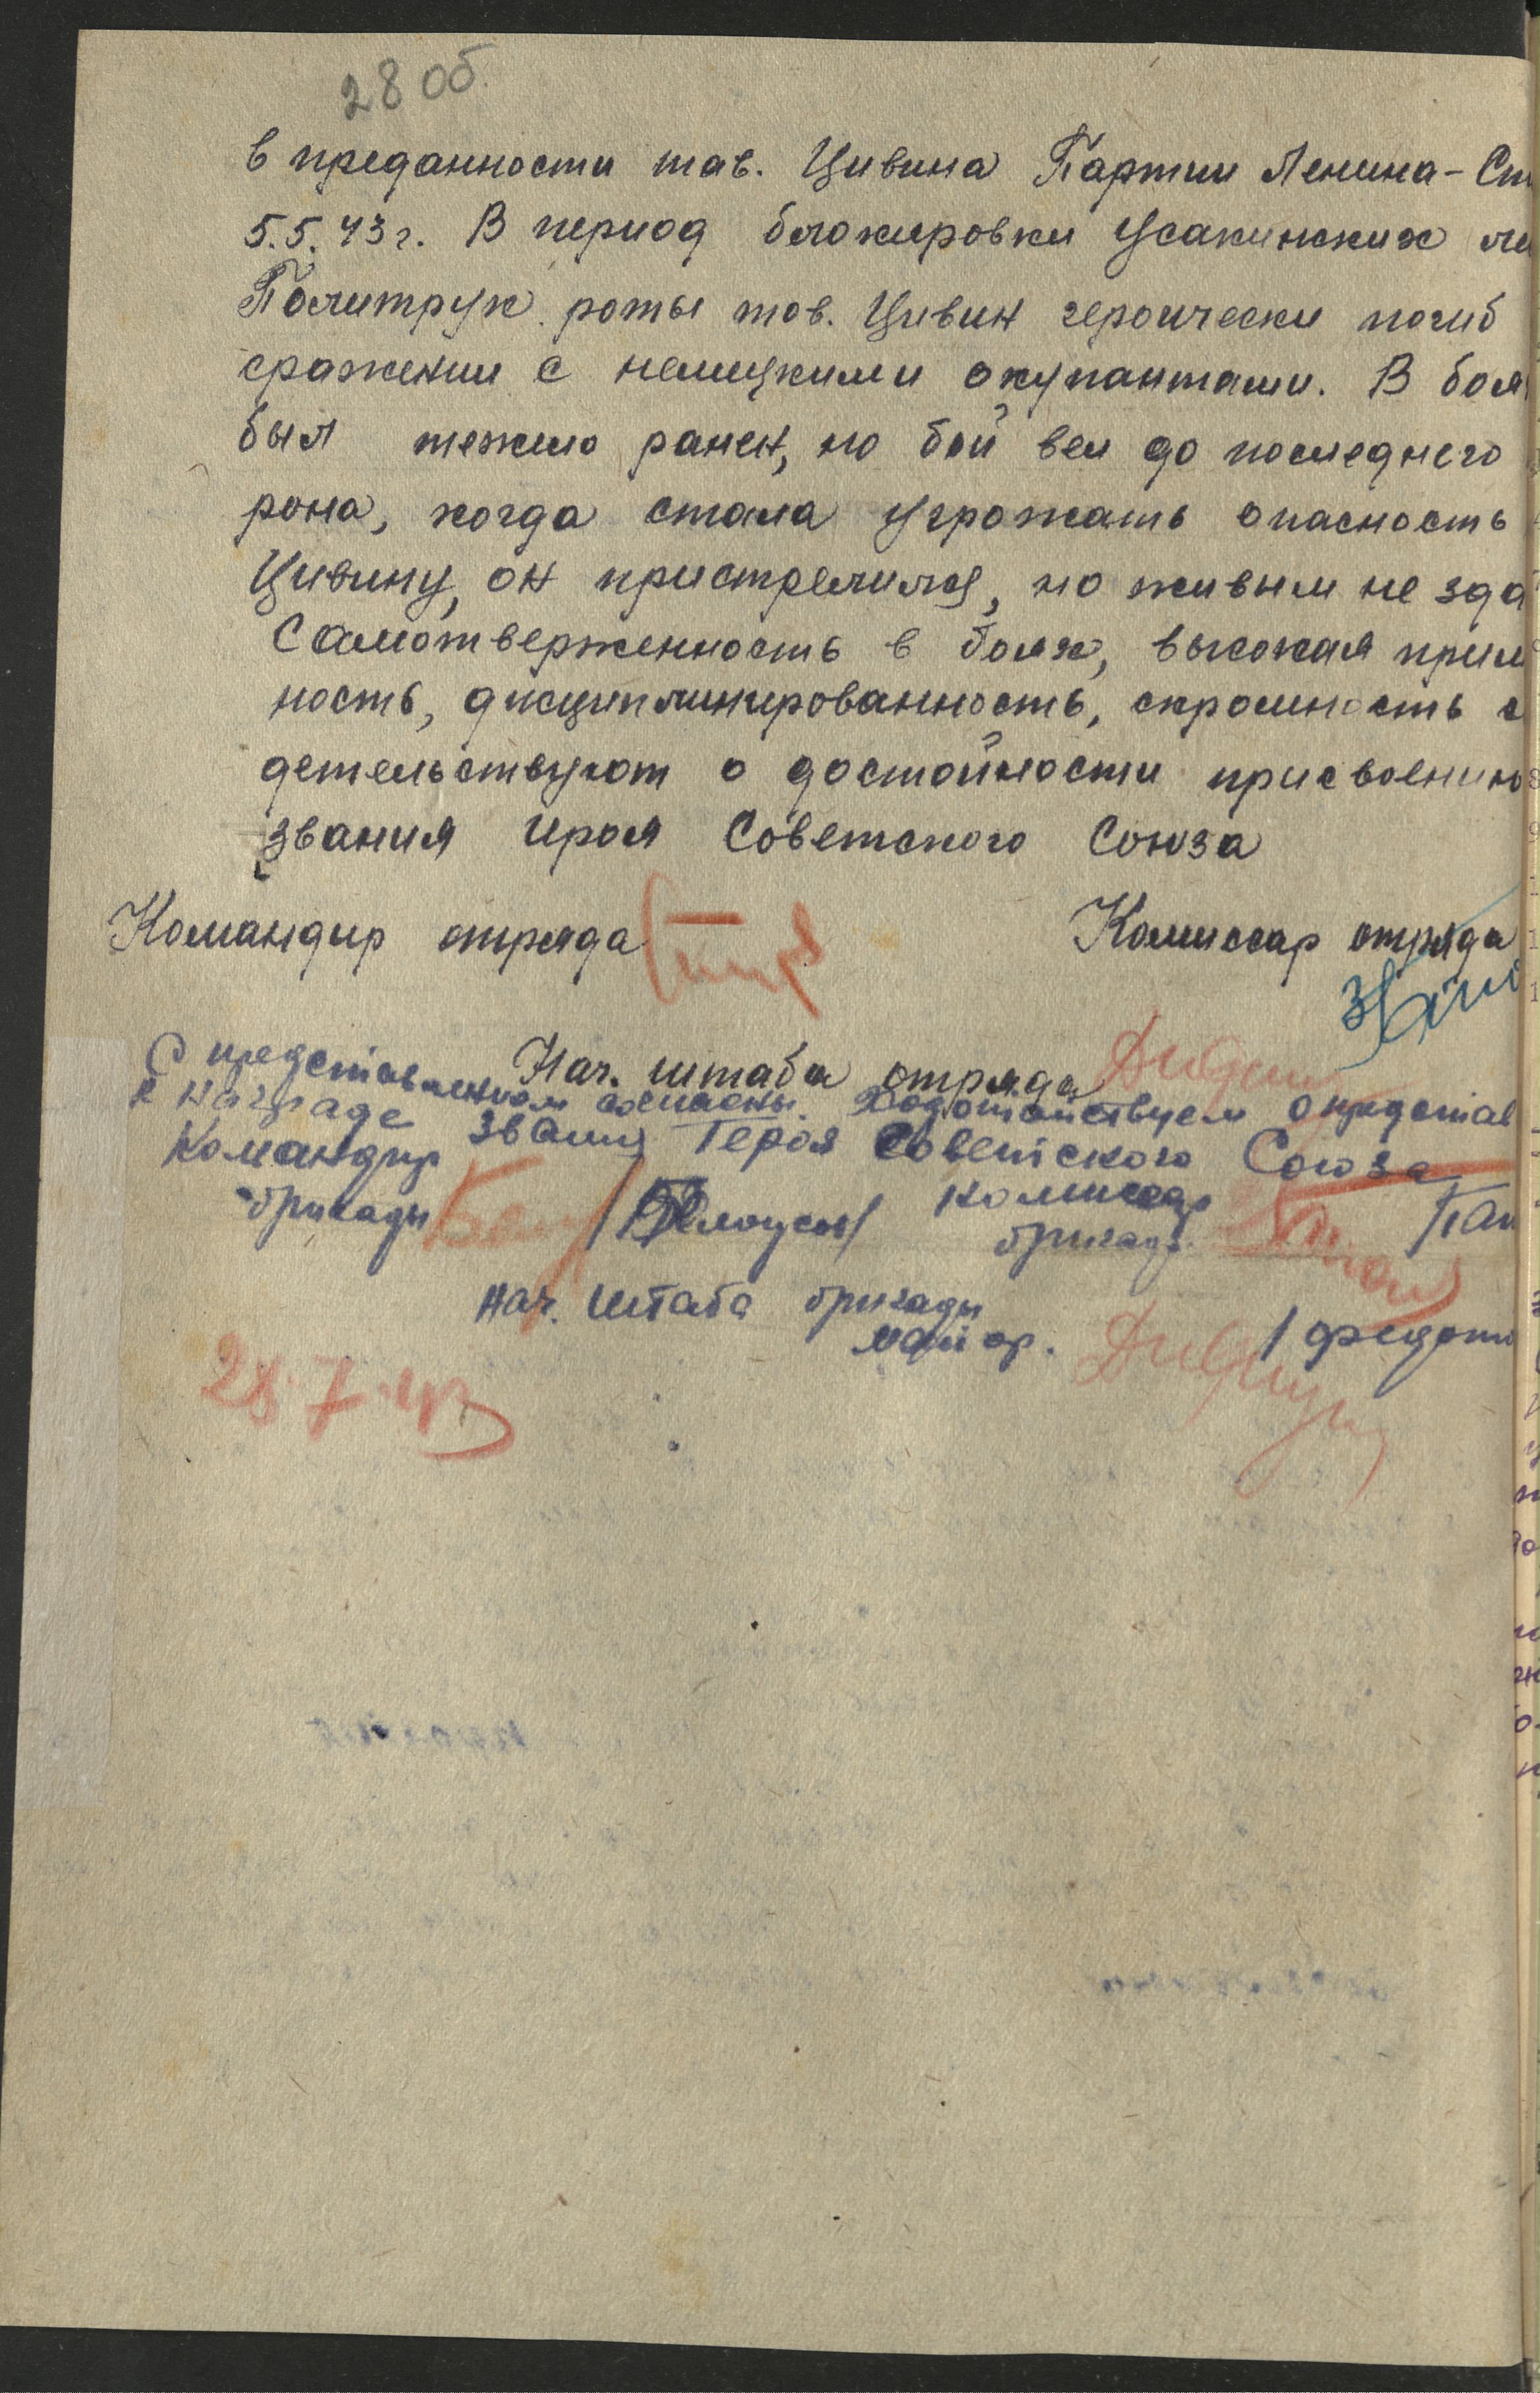 28 об.
в преданности тов. Цивина Партии Ленина - Ст
5.5.43 г. В период блокировки Усакинских ле
Политрук роты тов. Цивин героически погиб
сражении с немецкими окупантами. В боя
был тежело ранен, но бой вел до последнего
рона, когда стала угрожать опасность
Цивину, он пристрелился, но живым не зда
Самотверженность в боях, высокая прим
ность, дисциплинированность, скромность с
детельствуют о достойности присвоению
звания Ироя Советского Союза
Командир отряда Комиссар отряда
Нач. штаба отряда
С представлением согласны. Ходотайствуем о представ
к награде звания Героя Советского Союза
Командир бригады /Белоусов/ комиссар бригады
Нач. штаба бригады
майор. /Федото
28.7.43